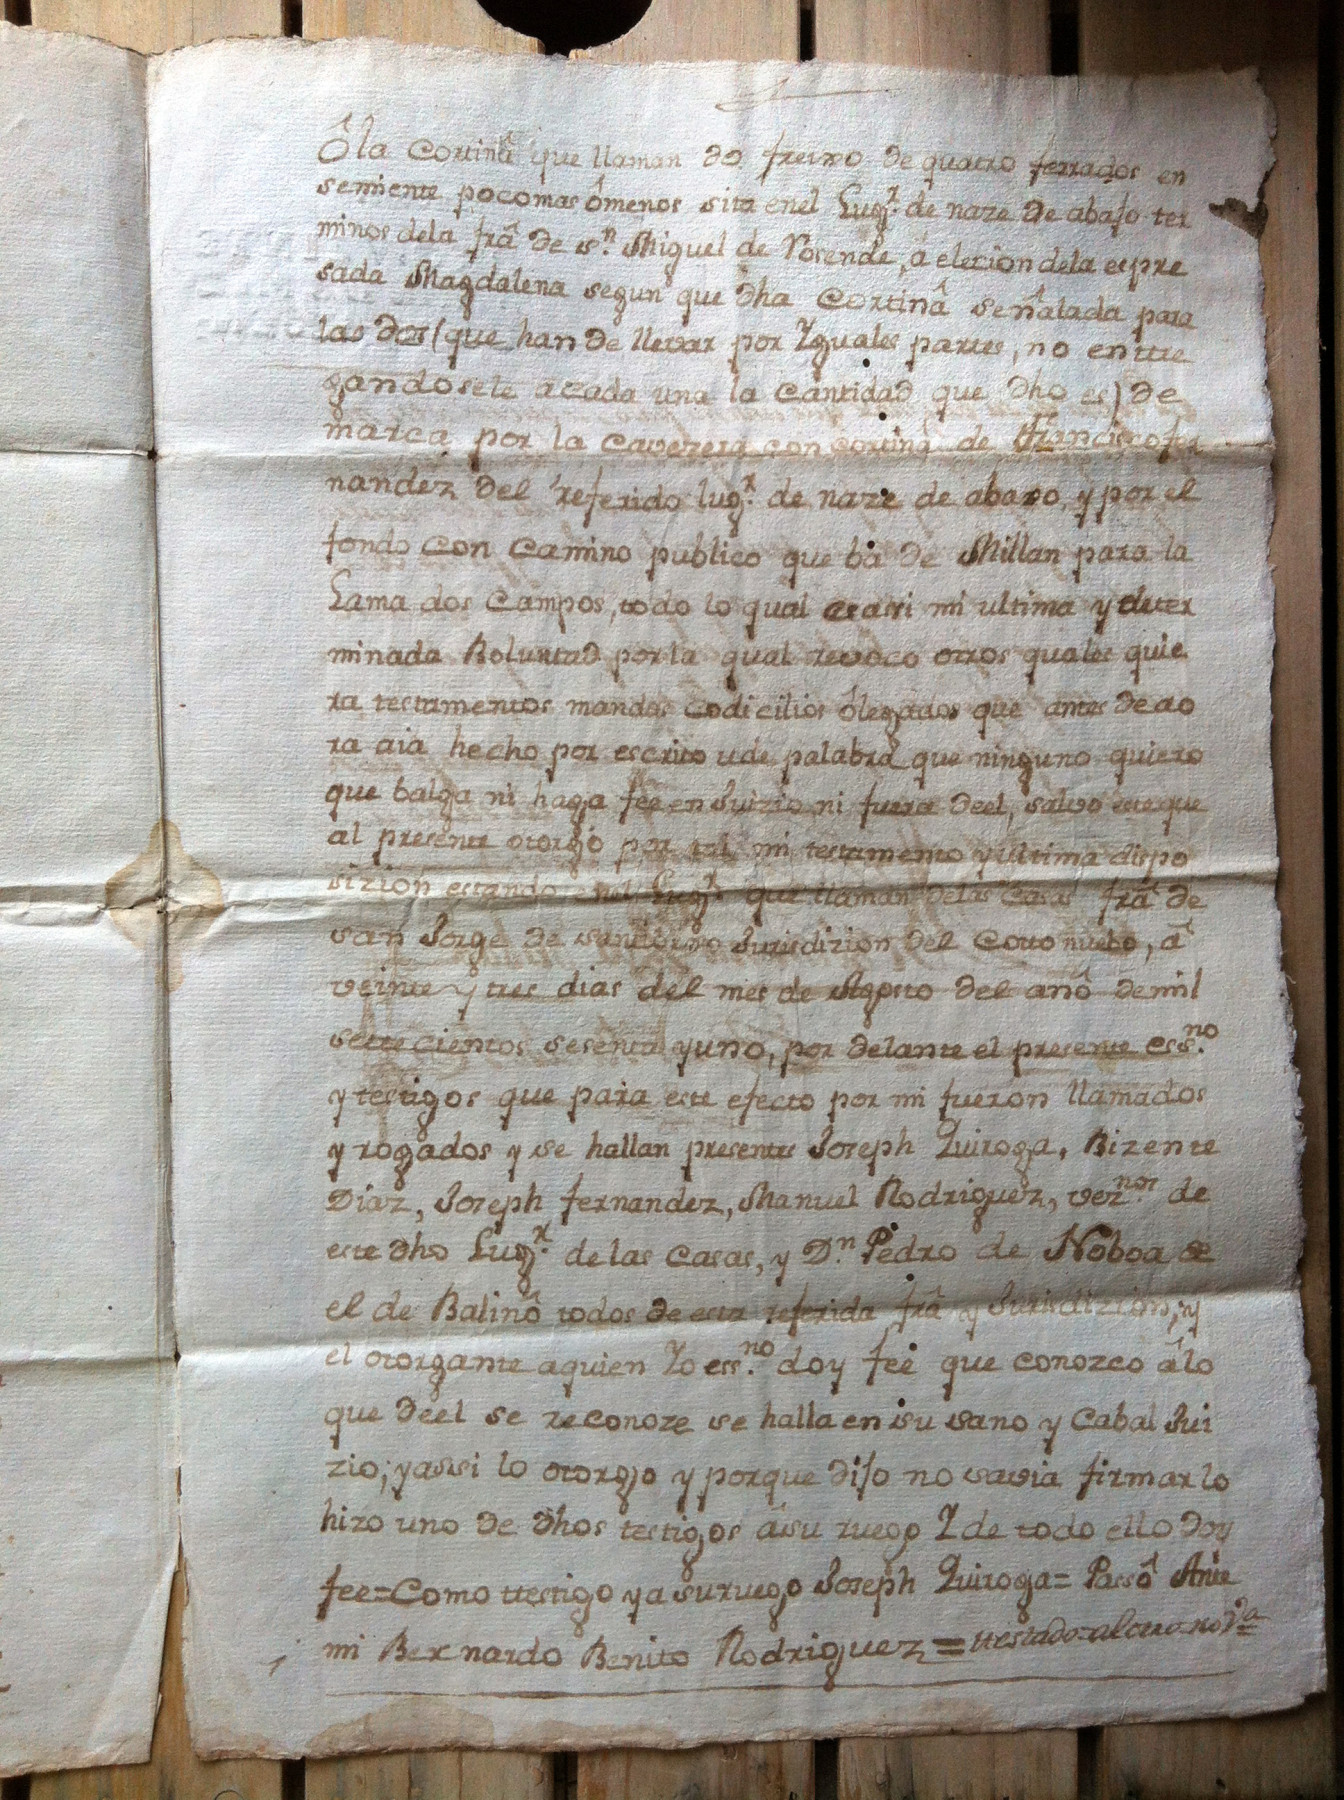 ô la Cortinâ que llaman do freixo de quatro ferrados en
semiente poco mas ômenos sita enel Lugr. de naze de abajo ter
minos dela frâ de Sn. Miguel de Rosende, a elecion dela espre
sada Magdalena segun que dha Cortinâ señalada para
las dos (que han de llevar por Yguales partes, no entre
gandosele acada una la Cantidad que dho es) de
marca por la Cavezera con cortinâ de Francisco fer
nandez del referido lugr. de naze de abaxo, y por el
fondo con Camino publico que ba de Millan para la
Lama dos Campos, todo lo qual es assi mi ultima y deter
minada Boluntad por la qual revoco otros quales quie
ra testamentos mandas Codicilios ôlegados que antes de ao
ra aia hecho por escrito ude palabra que ninguno quiero
que balga ni haga fee en Juizio ni fuera deel, salvo este que
al presente otorgo por tal mi testamento y ultima dispo
sizion estando enel Lugr. que llaman delas Casas frâ de
san Jorge de Jurisdizion del Coto nuebo, â
veinte y tres dias del mes de Agosto del anô demil
sette cientos sesenta yuno, por delante el presente essno.
y testigos que para este efecto por mi fueron llamados
y rogados y se hallan presentes Joseph Quiroga, Bizente
Diaz, Joseph fernandez, Manuel Rodriguez, veznos. de
este dho Lugr. de las Casas, y Dn. Pedro de Noboa de
el de Balinô todos de esta referida frâ y Jurisdizion; y
el otorgante aquien Yo essno. doy feé que conozco âlo
que deel se reconoze se halla en su sano y Cabal Jui
zio; yassi lo otorgo y porque dijo no savia firmar lo
hizo uno de dhos testigos âsu ruego Y de todo ello doy
fee=Como ttestigo y a su ruego Joseph Quiroga= Passô Ante
mi Bernardo Benito Rodriguez = ttestado=